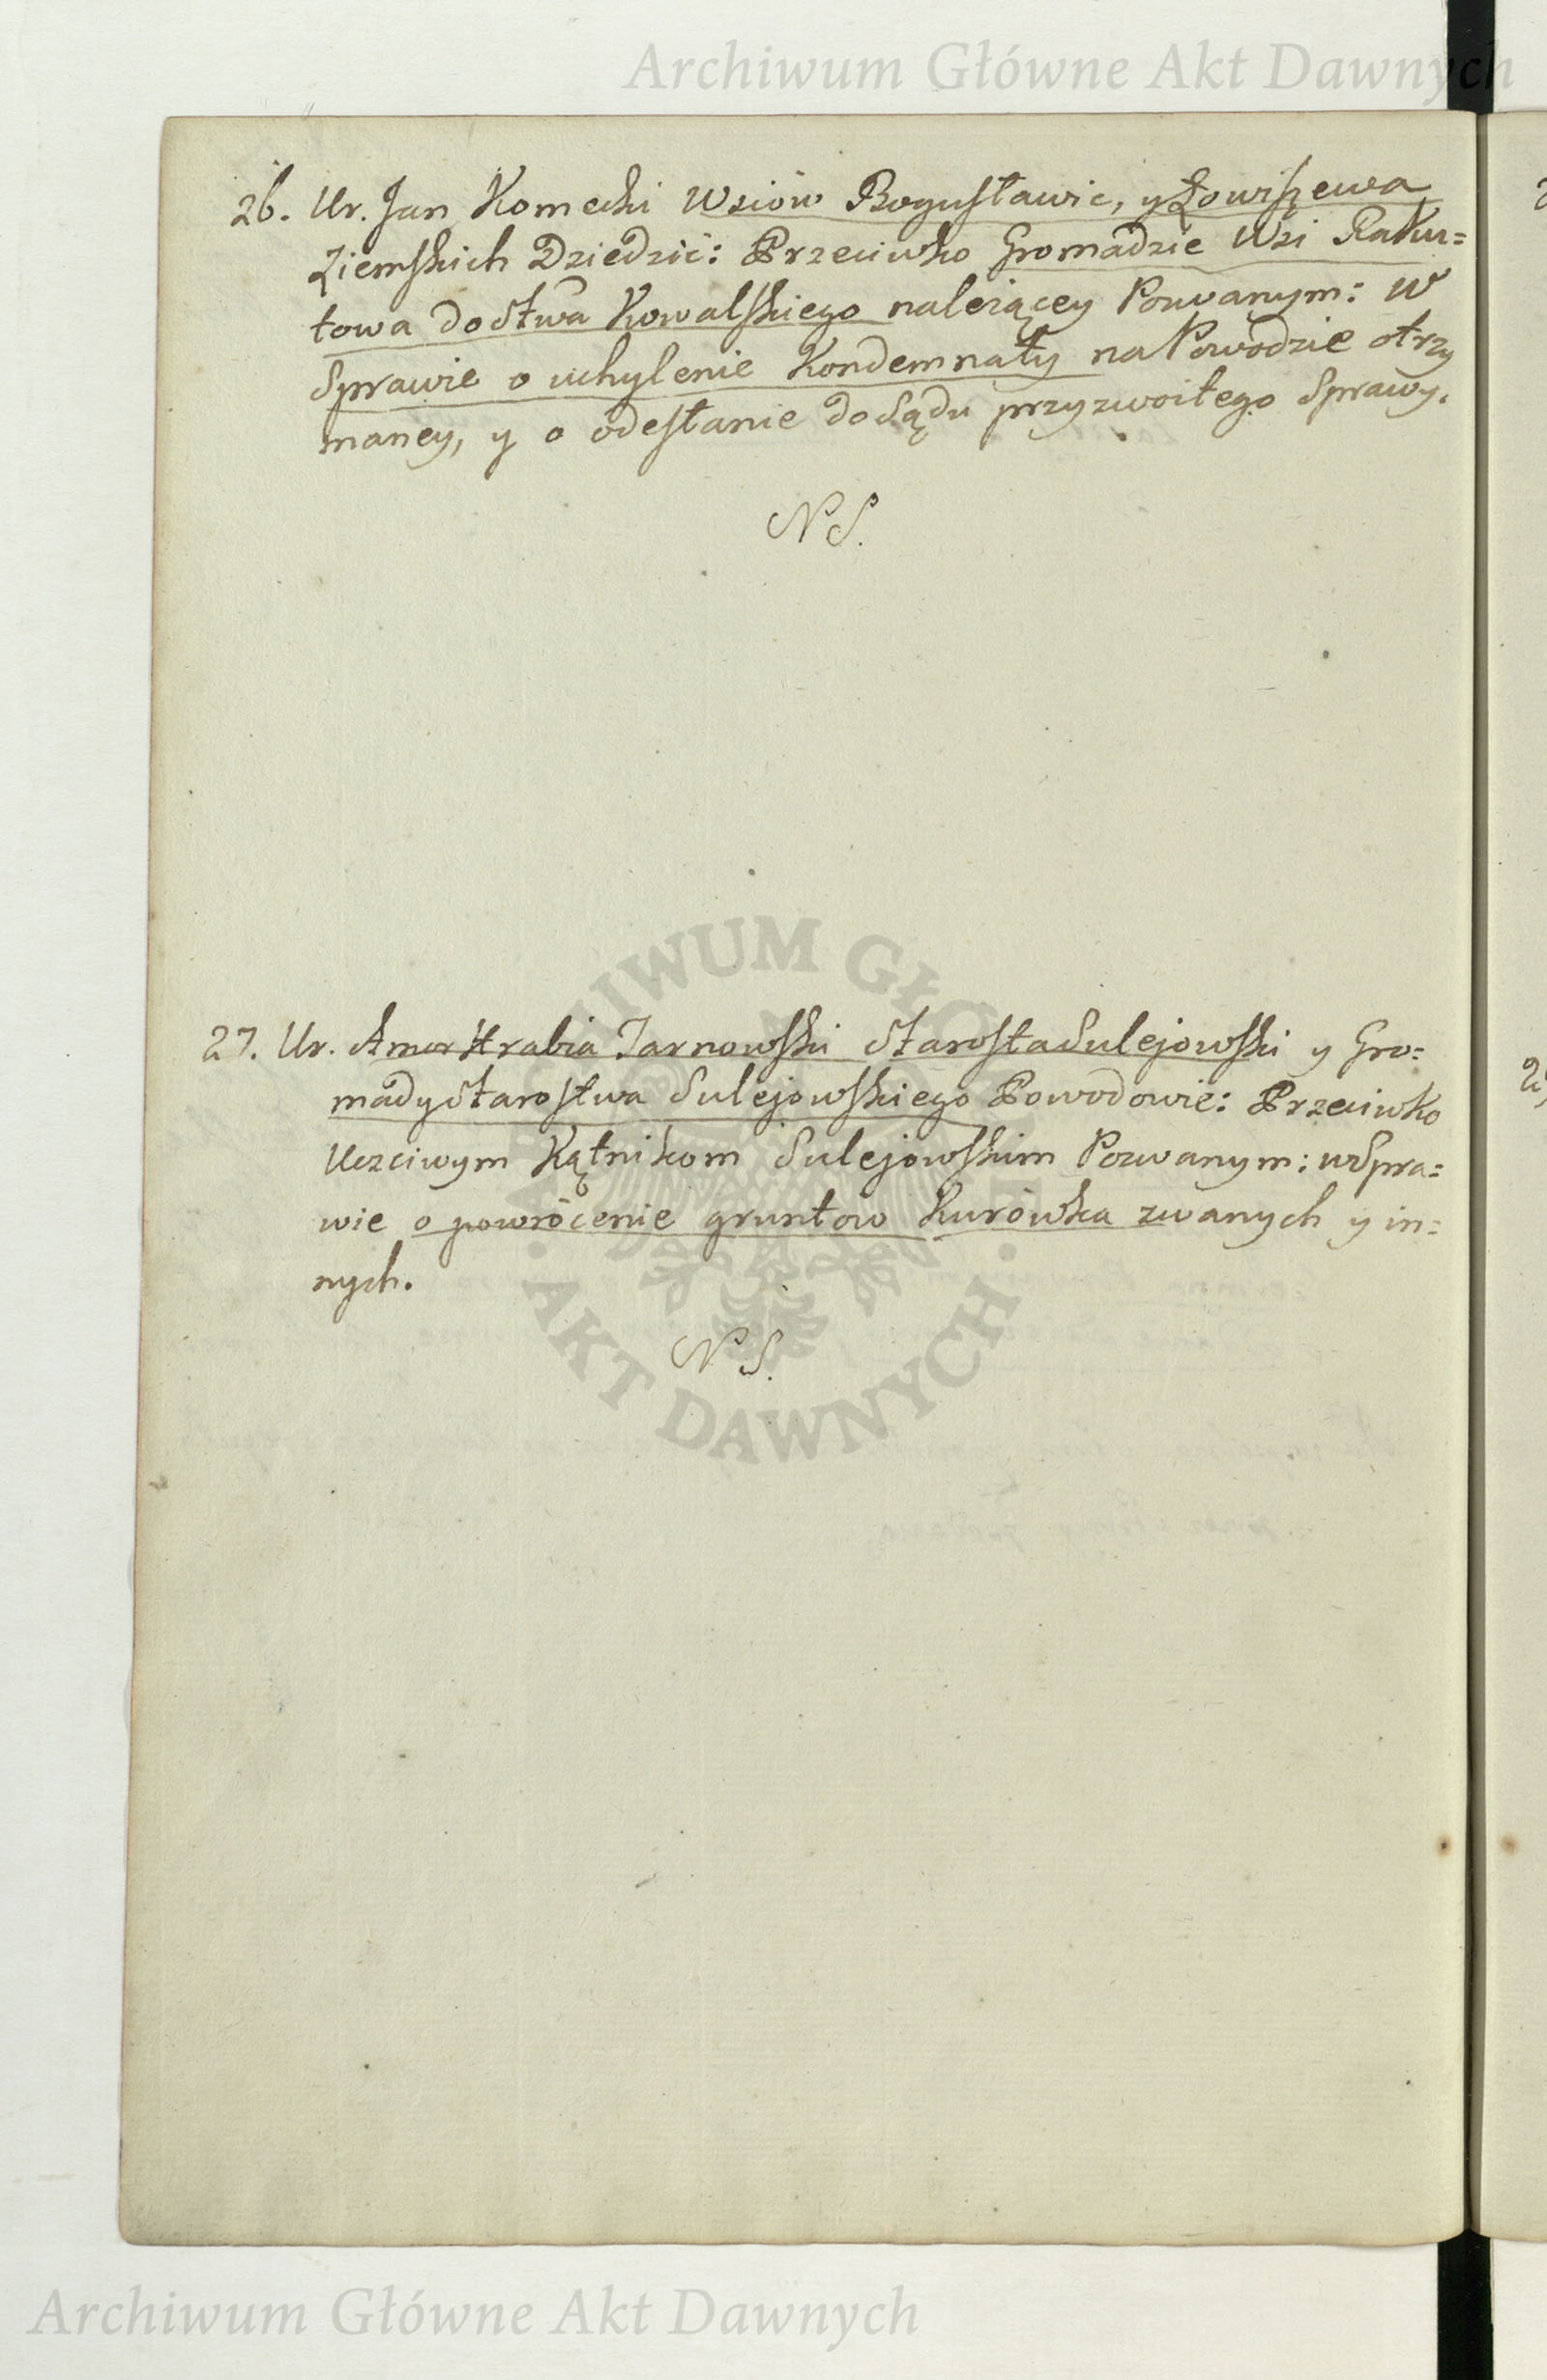 Archiwum Główne Akt Dawnych
26. Ur. Jan Komecki Wsiów Bogusławic, y Łowiszewa
Ziemskich Dziedzić: Przeciwko Gromadzie Wsi Rakur=
towa do Stwa Kowalskiego należącey Pozwanym: W
Sprawie o uchylenie Kondemnaty na Powodzie otrzy
maney, y o odesłanie do Sądu przyzwoitego Sprawy.
NS.
27. Ur. Amor Hrabia Tarnowski Starosta Sulejowski y Gro=
mady Starostwa Sulejowskiego Powodowie: Przeciwko
Uczciwym Kątnikom Sulejowskim Pozwanym: w Spra=
wie o powrócenie gruntow Kurówka zwanych y in=
nych.
NS.
ARCHIWUM GŁÓWNE AKT DAWNYCH
Archiwum Główne Akt Dawnych